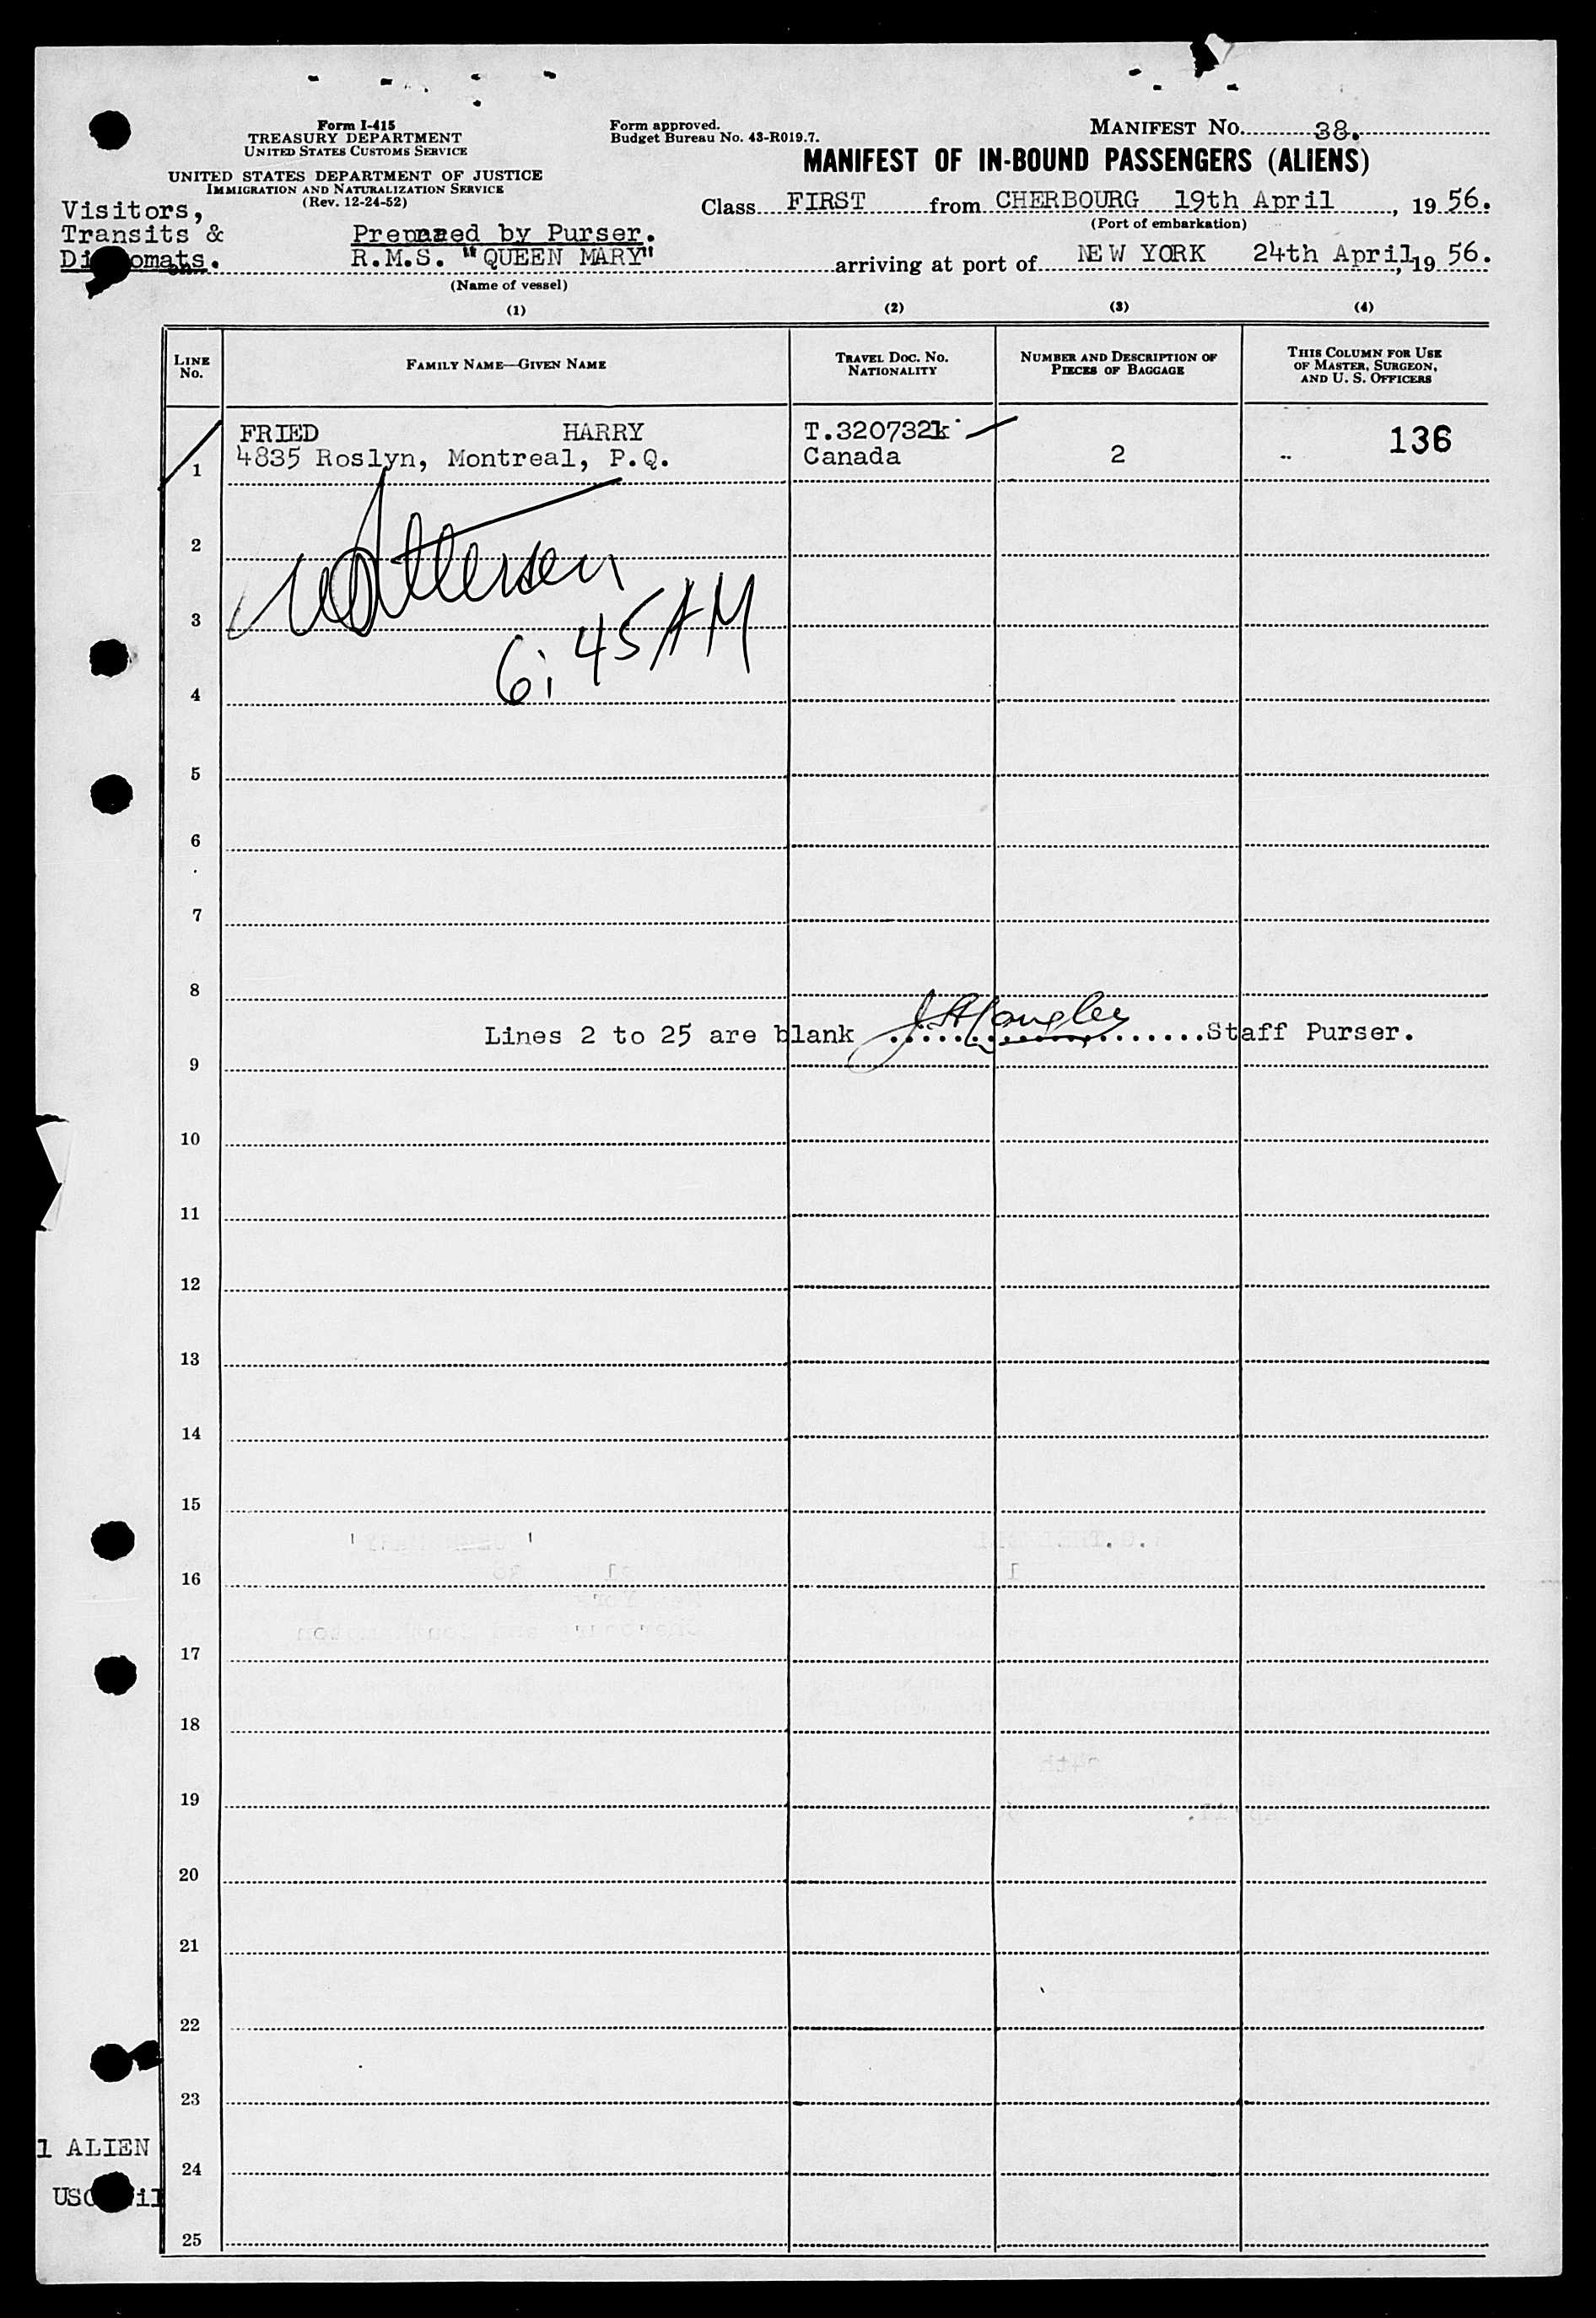 Form I-415
TREASURY DEPARTMENT
UNITED STATES CUSTOMS SERVICE
UNITED STATES DEPARTMENT OF JUSTICE
IMMIGRATION AND NATURALIZATION SERVICE
(Rev. 12-24-52)
Form approved.
Budget Bureau No. 43-R019.7.
MANIFEST NO. 38.
MANIFEST OF IN-BOUND PASSENGERS (ALIENS)
Class FIRST from CHERBOURG 19th April, 1956.
(Port of embarkation)
Visitors,
Transits &
Prepared by Purser.
R.M.S. "QUEEN MARY" arriving at port of NEW YORK 24th April, 1956.
(Name of vessel)
(1) (2) (3) (4)
LINE NO. FAMILY NAME—GIVEN NAME TRAVEL DOC. NO. NATIONALITY NUMBER AND DESCRIPTION OF PIECES OF BAGGAGE THIS COLUMN FOR USE OF MASTER, SURGEON, AND U. S. OFFICERS
FRIED HARRY T.320732k 136
1 4835 Roslyn, Montreal, P.Q. Canada 2
2
3
6:45AM
4
5
6
7
8
Lines 2 to 25 are blank Staff Purser.
9
10
11
12
13
14
15
16
17
18
19
20
21
22
23
1 ALIEN
24
25